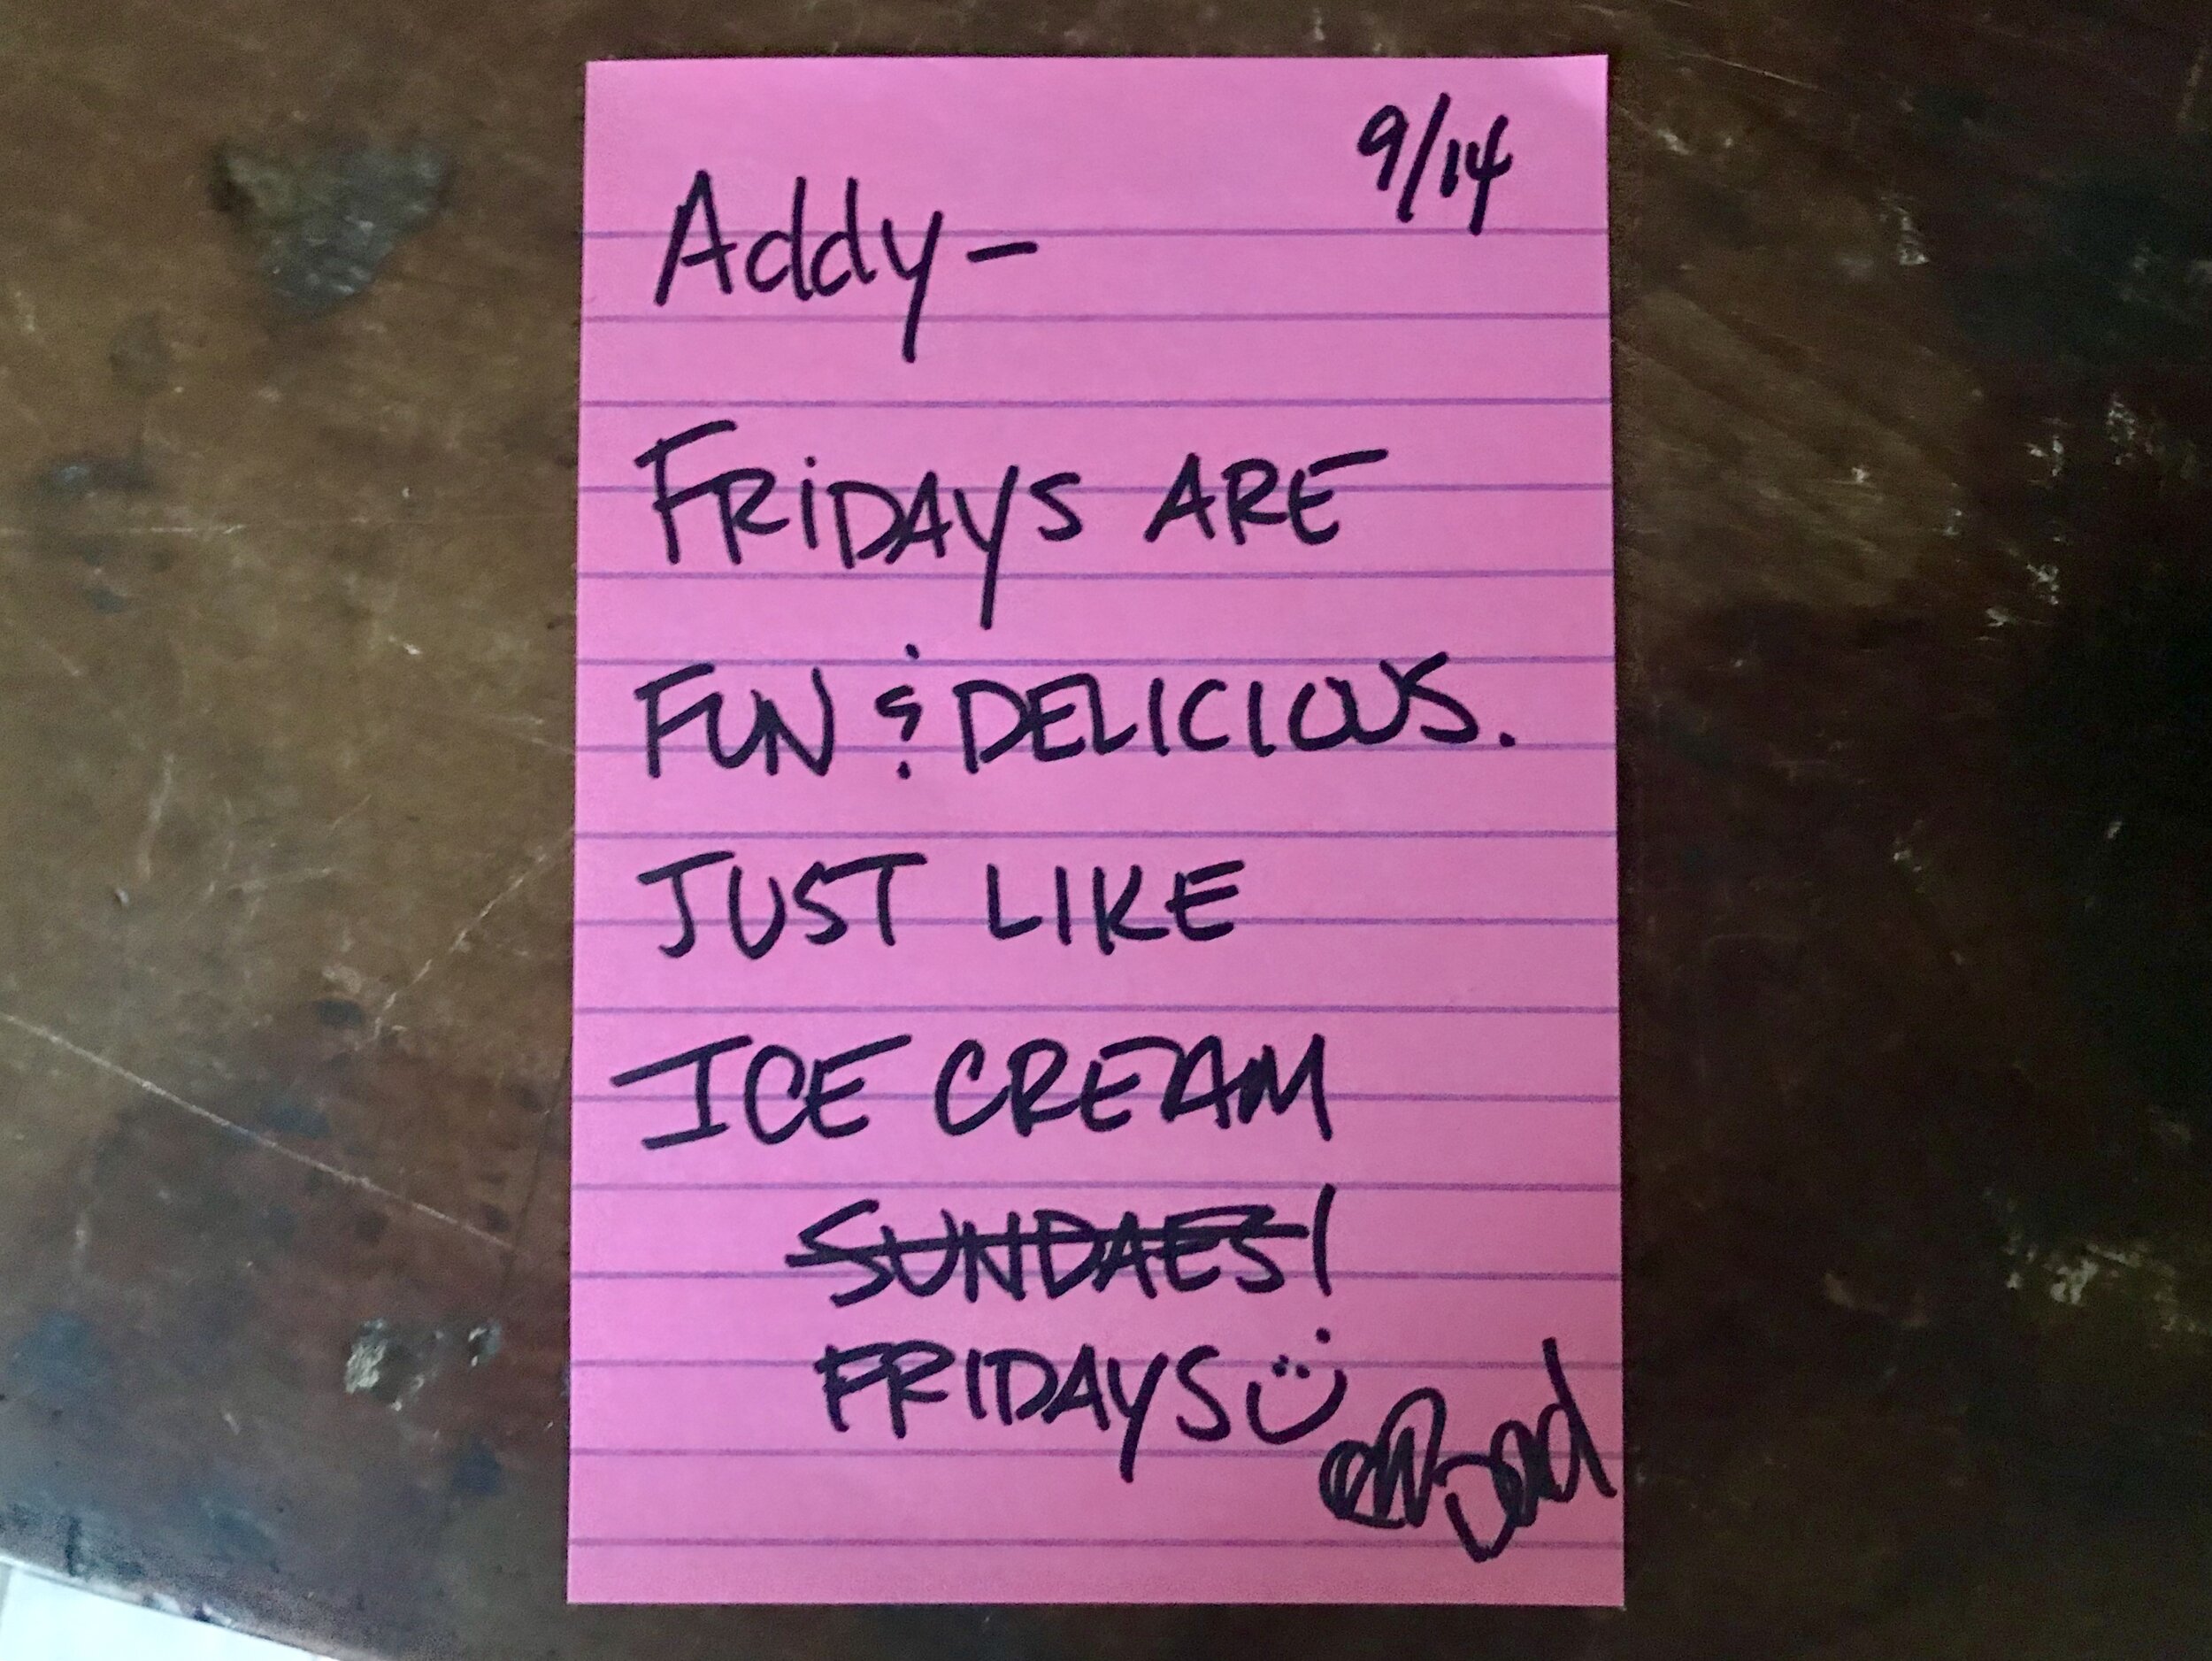 9/14
Addy-
FRiDAYS ARE
FUN & DELICIOUS.
JUST LIKE
ICE CREAM
SUNDAES!
FRIDAYS
Dad